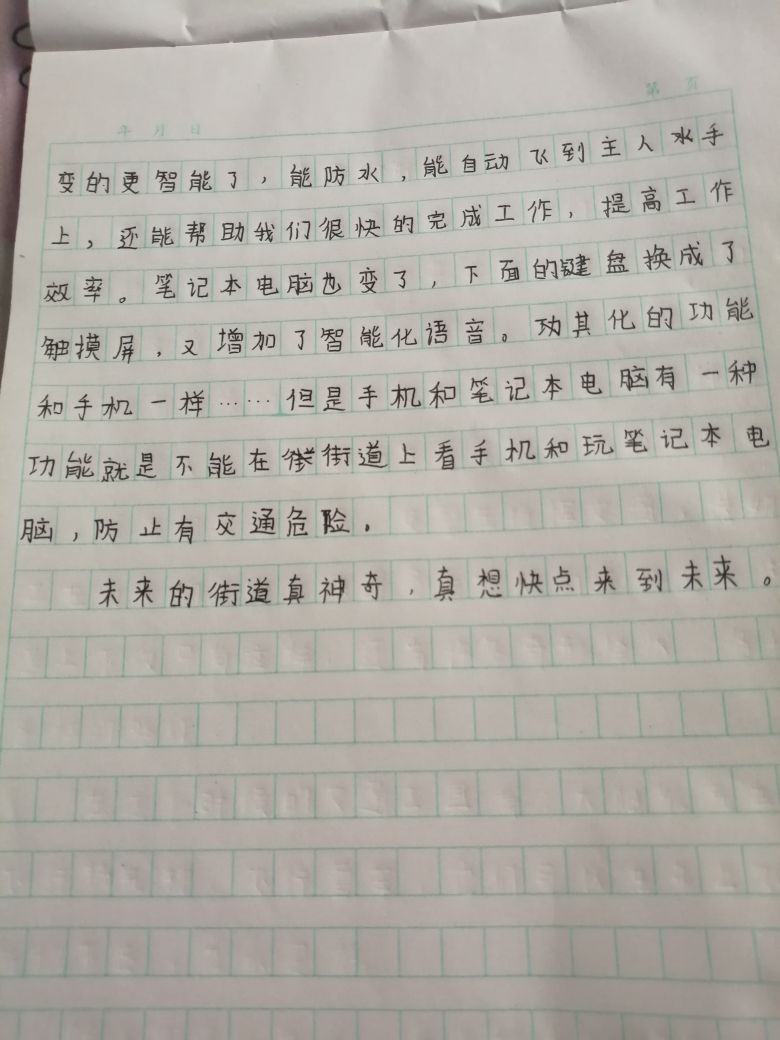 第 页
年 月 日
变的更智能了，能防水，能自动飞到主人水手
上，还能帮助我们很快的完成工作，提高工作
效率。笔记本电脑也变了，下面的键盘换成了
触摸屏，又增加了智能化语音。功其化的功能
和手机一样……但是手机和笔记本电脑有一种
功能就是不能在街道上看手机和玩笔记本电
脑，防止有交通危险.
未来的街道真神奇，真想快点来到未来。